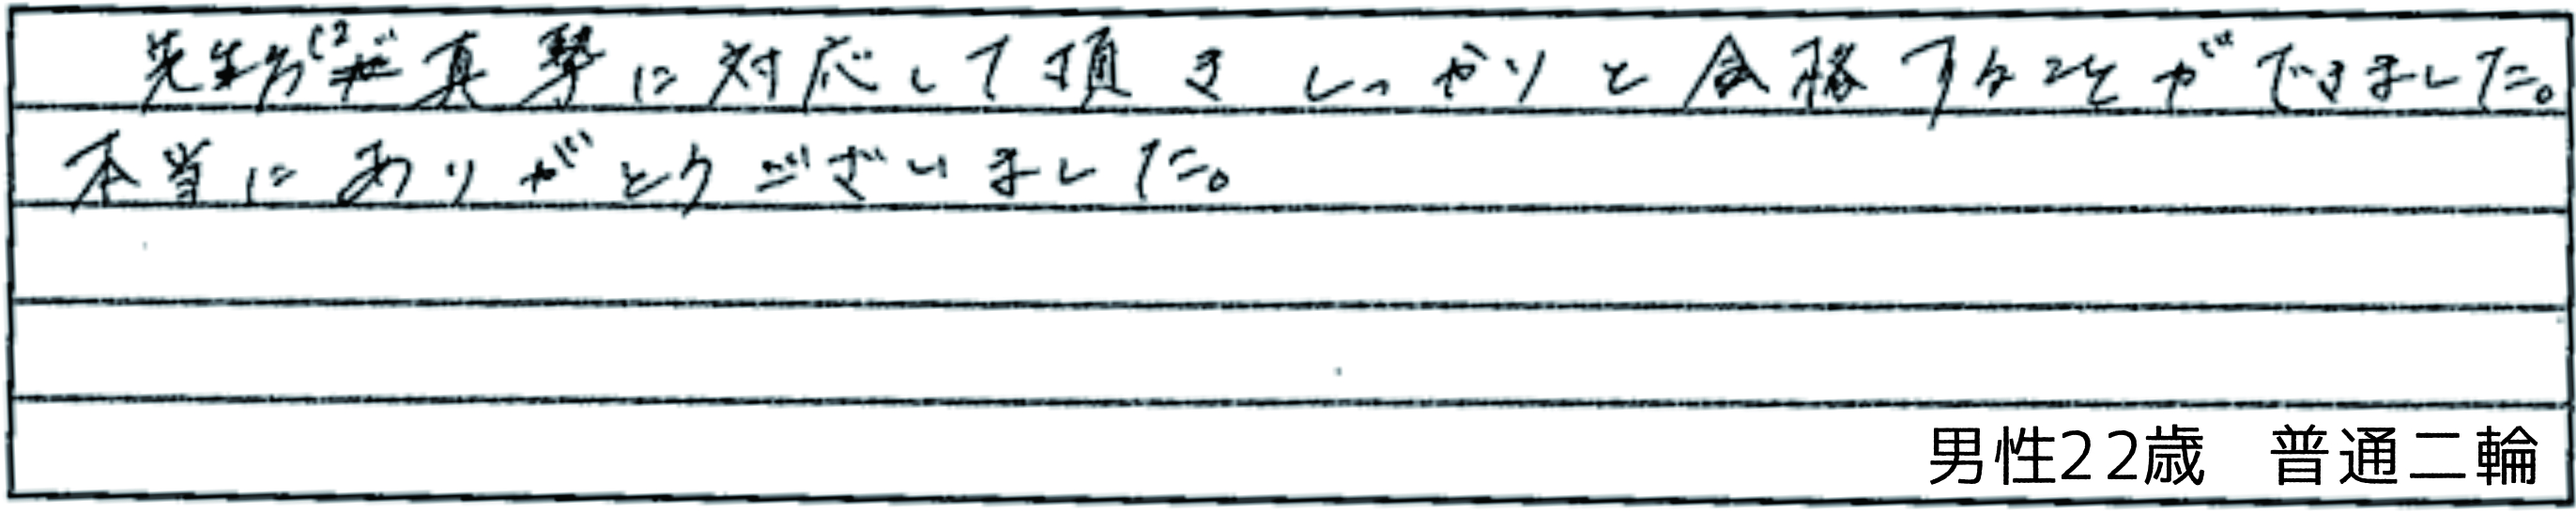 先生方に真摯に対応して頂きしっかりと合格することができました。
本当にありがとうございました。
男性22歳　普通二輪